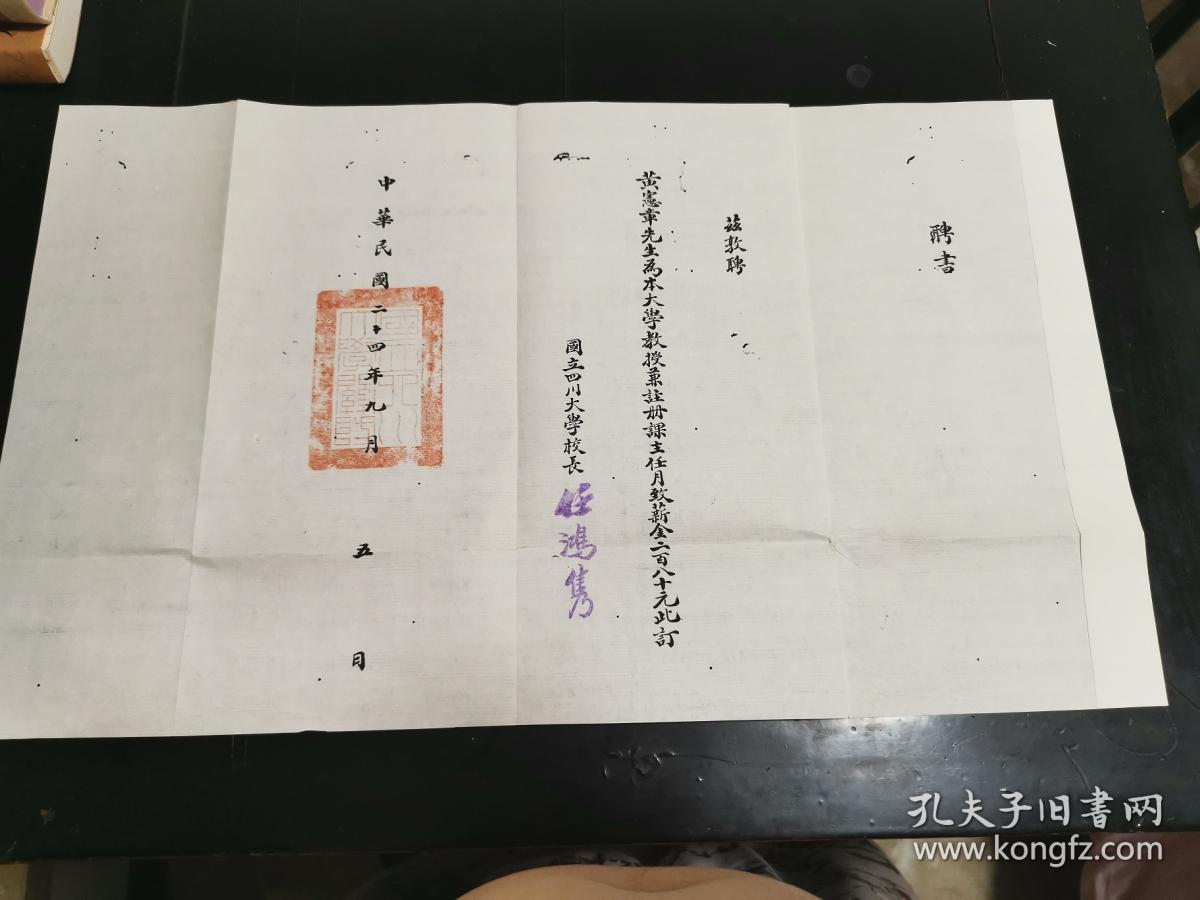 聘書
茲敦聘
黃憲章先生為本大學教授兼註册課主任月致薪金二百八十元此訂
國立四川大學校長
任鴻雋
中華民國二十四年九月五日
孔夫子旧书网
www.kongfz.com